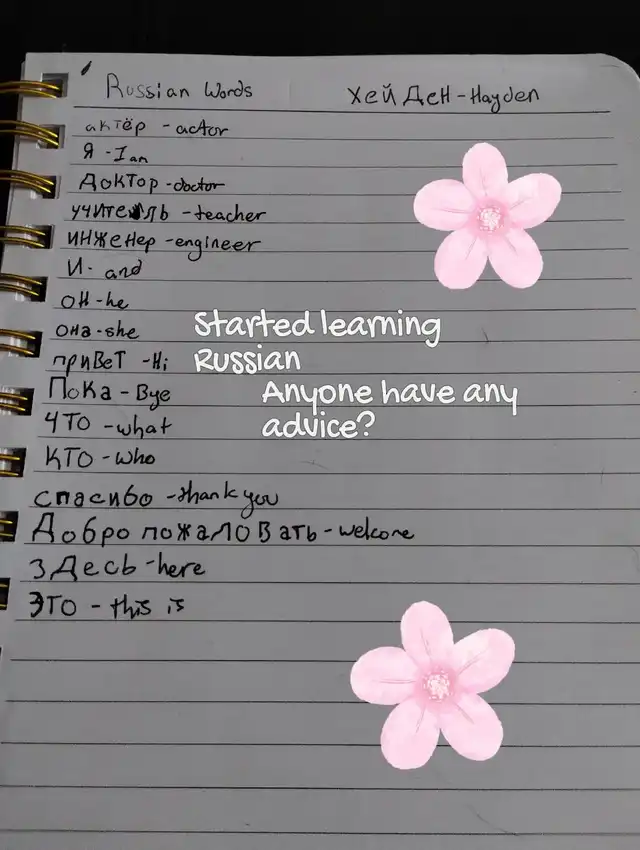 Russian Words
Хей Ден - Hayden
актёр - actor
Я - I am
Доктор - doctor
учитель - teacher
инженер - engineer
И - and
он - he
она - she
привет - Hi
Пока - Bye
что - what
кто - who
спасибо - thank you
Добро пожаловать - welcome
здесь - here
Это - this is
Started learning
Russian
Anyone have any
advice?